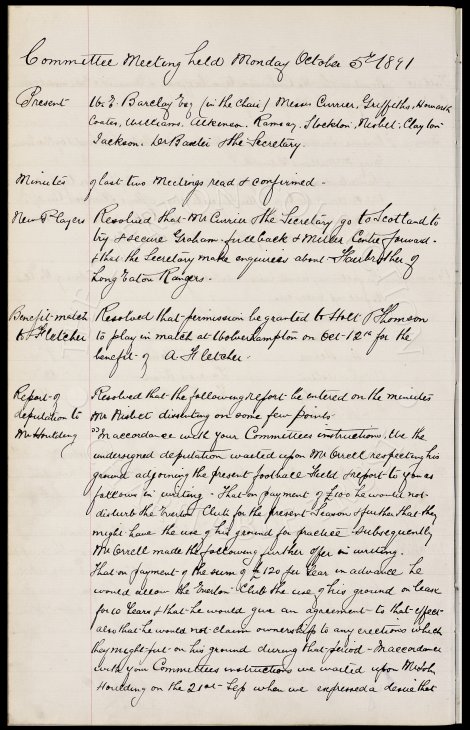 Committee Meeting held Monday October 5th 1891
Present W. E. Barclay Esq (in the chair) Messrs Currier, Griffiths, Howarth
Coates, Williams, Atkinson, Ramsay, Stockton, Nisbet, Clayton
Jackson, Dr Baxter & the Secretary.
Minutes of last two Meetings read & confirmed.
New Players Resolved that Mr Currier & the Secretary go to Scotland to
try & secure Graham fullback & Miller Centre forward.
& that the Secretary make enquiries about Hardbrother of
Long Eaton Rangers.
Benefit match Resolved that permission be granted to Holt & Thomson
to A Fletcher to play in match at Wolverhampton on Oct 12th for the
benefit of A Fletcher.
Report of Resolved that the following report be entered on the minutes
deputation to Mr Nisbet dissenting on some few points
Mr Houlding "In accordance with your Committees instructions, We the
undersigned deputation waited upon Mr Orrell respecting his
ground adjoining the present football Field & report to you as
follows in writing. That on payment of £100 he would not
disturb the Everton Club for the present Season & further that they
might have the use of his ground for practice. Subsequently
Mr Orrell made the following further offer in writing.
That on payment of the sum of £120 per Year in advance he
would allow the Everton Club the use of his ground on lease
for 10 Years & that he would give an agreement to that effect
also that he would not claim ownership to any erections which
they might put on his ground during that period. In accordance
with your Committees instructions we waited upon Mr John
Houlding on the 21st Sep when we expressed a desire that